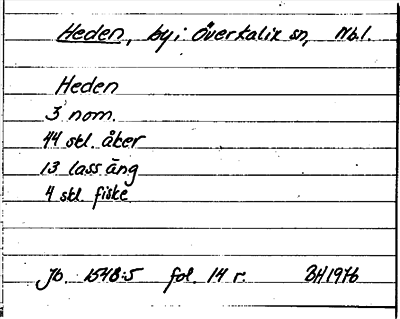 Heden, by i Överkalix sn, Nbl.
Heden
3 nom.
44 skl. åker
13 lass äng
4 skl. fiske
Jb. 1548:5 fol. 14 r. BH 1976